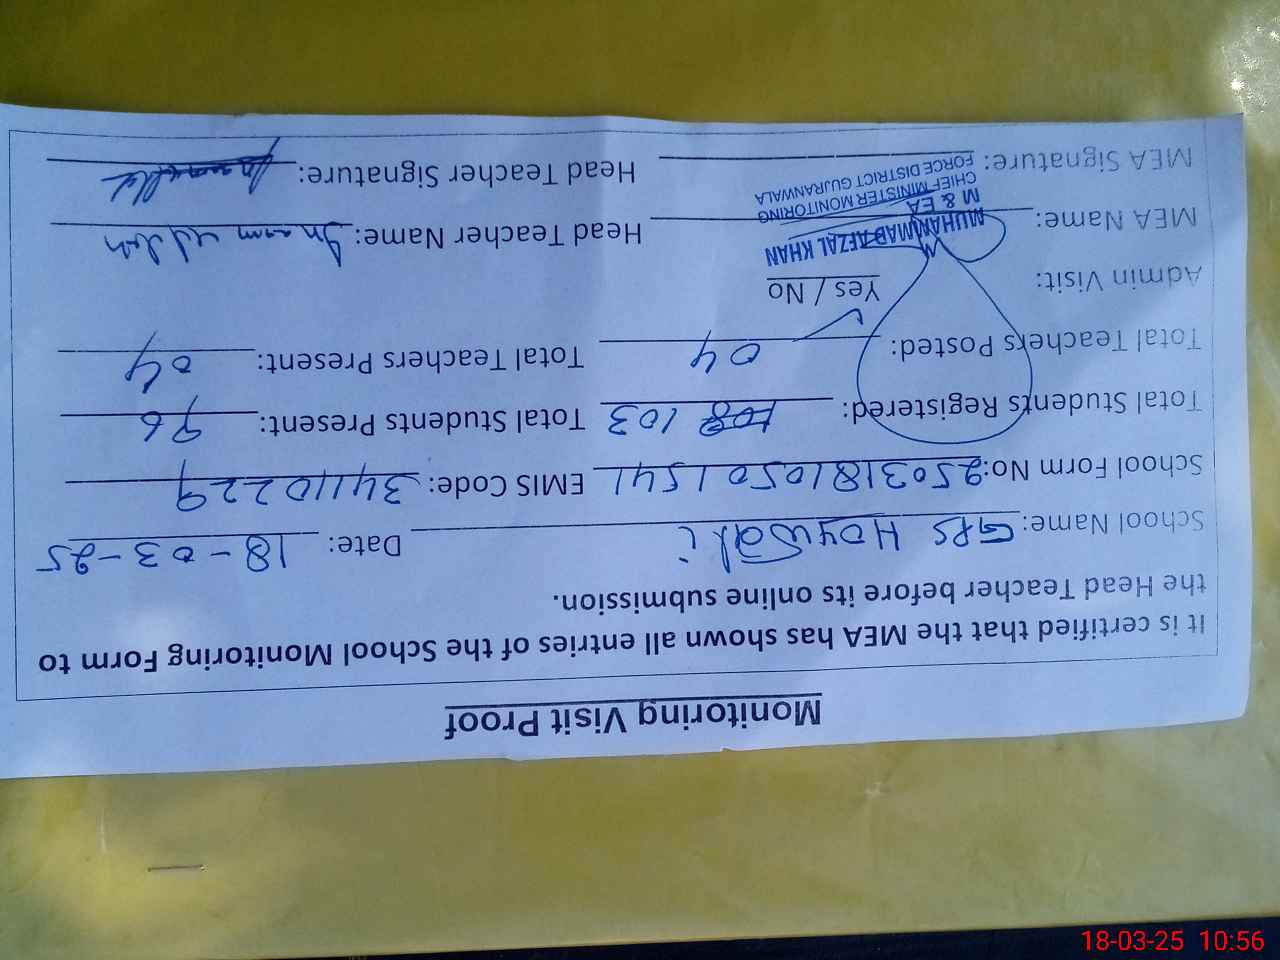 Monitoring Visit Proof
It is certified that the MEA has shown all entries of the School Monitoring Form to
the Head Teacher before its online submission.
School Name: GPS Hoywali Date: 18-03-25
School Form No: 25031810501541 EMIS Code: 34110229
Total Students Registered: 103 Total Students Present: 96
Total Teachers Posted: 04 Total Teachers Present: 04
Admin Visit: Yes / No
MEA Name: Head Teacher Name: Inam
MUHAMMAD AFZAL KHAN
M & EA
CHIEF MINISTER MONITORING
FORCE DISTRICT GUJRANWALA
MEA Signature: Head Teacher Signature:
18-03-25 10:56